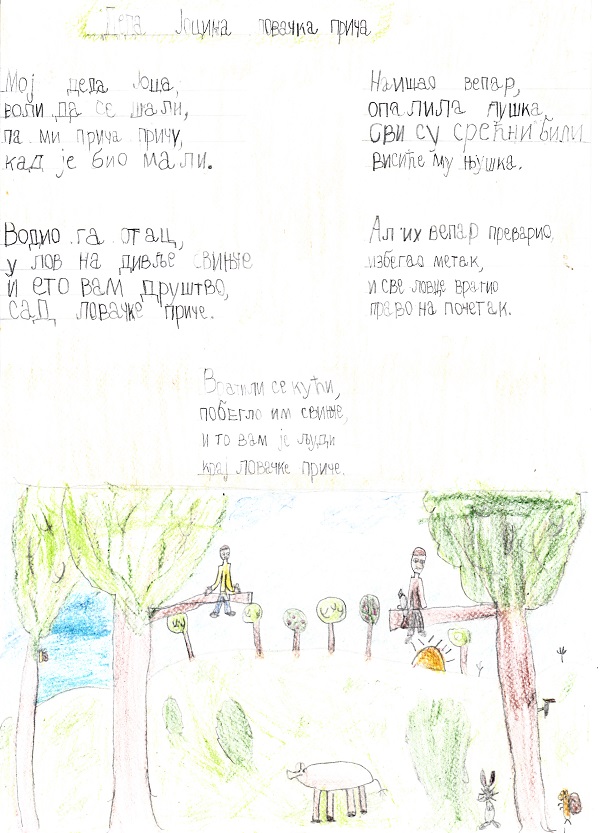 Деда Јоцина ловачка прича
Мој деда Јоца,
воли да се шали,
па ми прича причу,
кад је био мали.
Водио га отац,
у лов на дивље свиње
и ето вам друштво,
сад ловачке приче.
Наишао вепар,
опалила пушка,
сви су срећни били
висиће му њушка.
Ал их вепар преварио,
избегао метак,
и све ловце вратио
право на почетак.
Вратили се кући,
побегло им свиње,
и то вам је људи
крај ловачке приче.